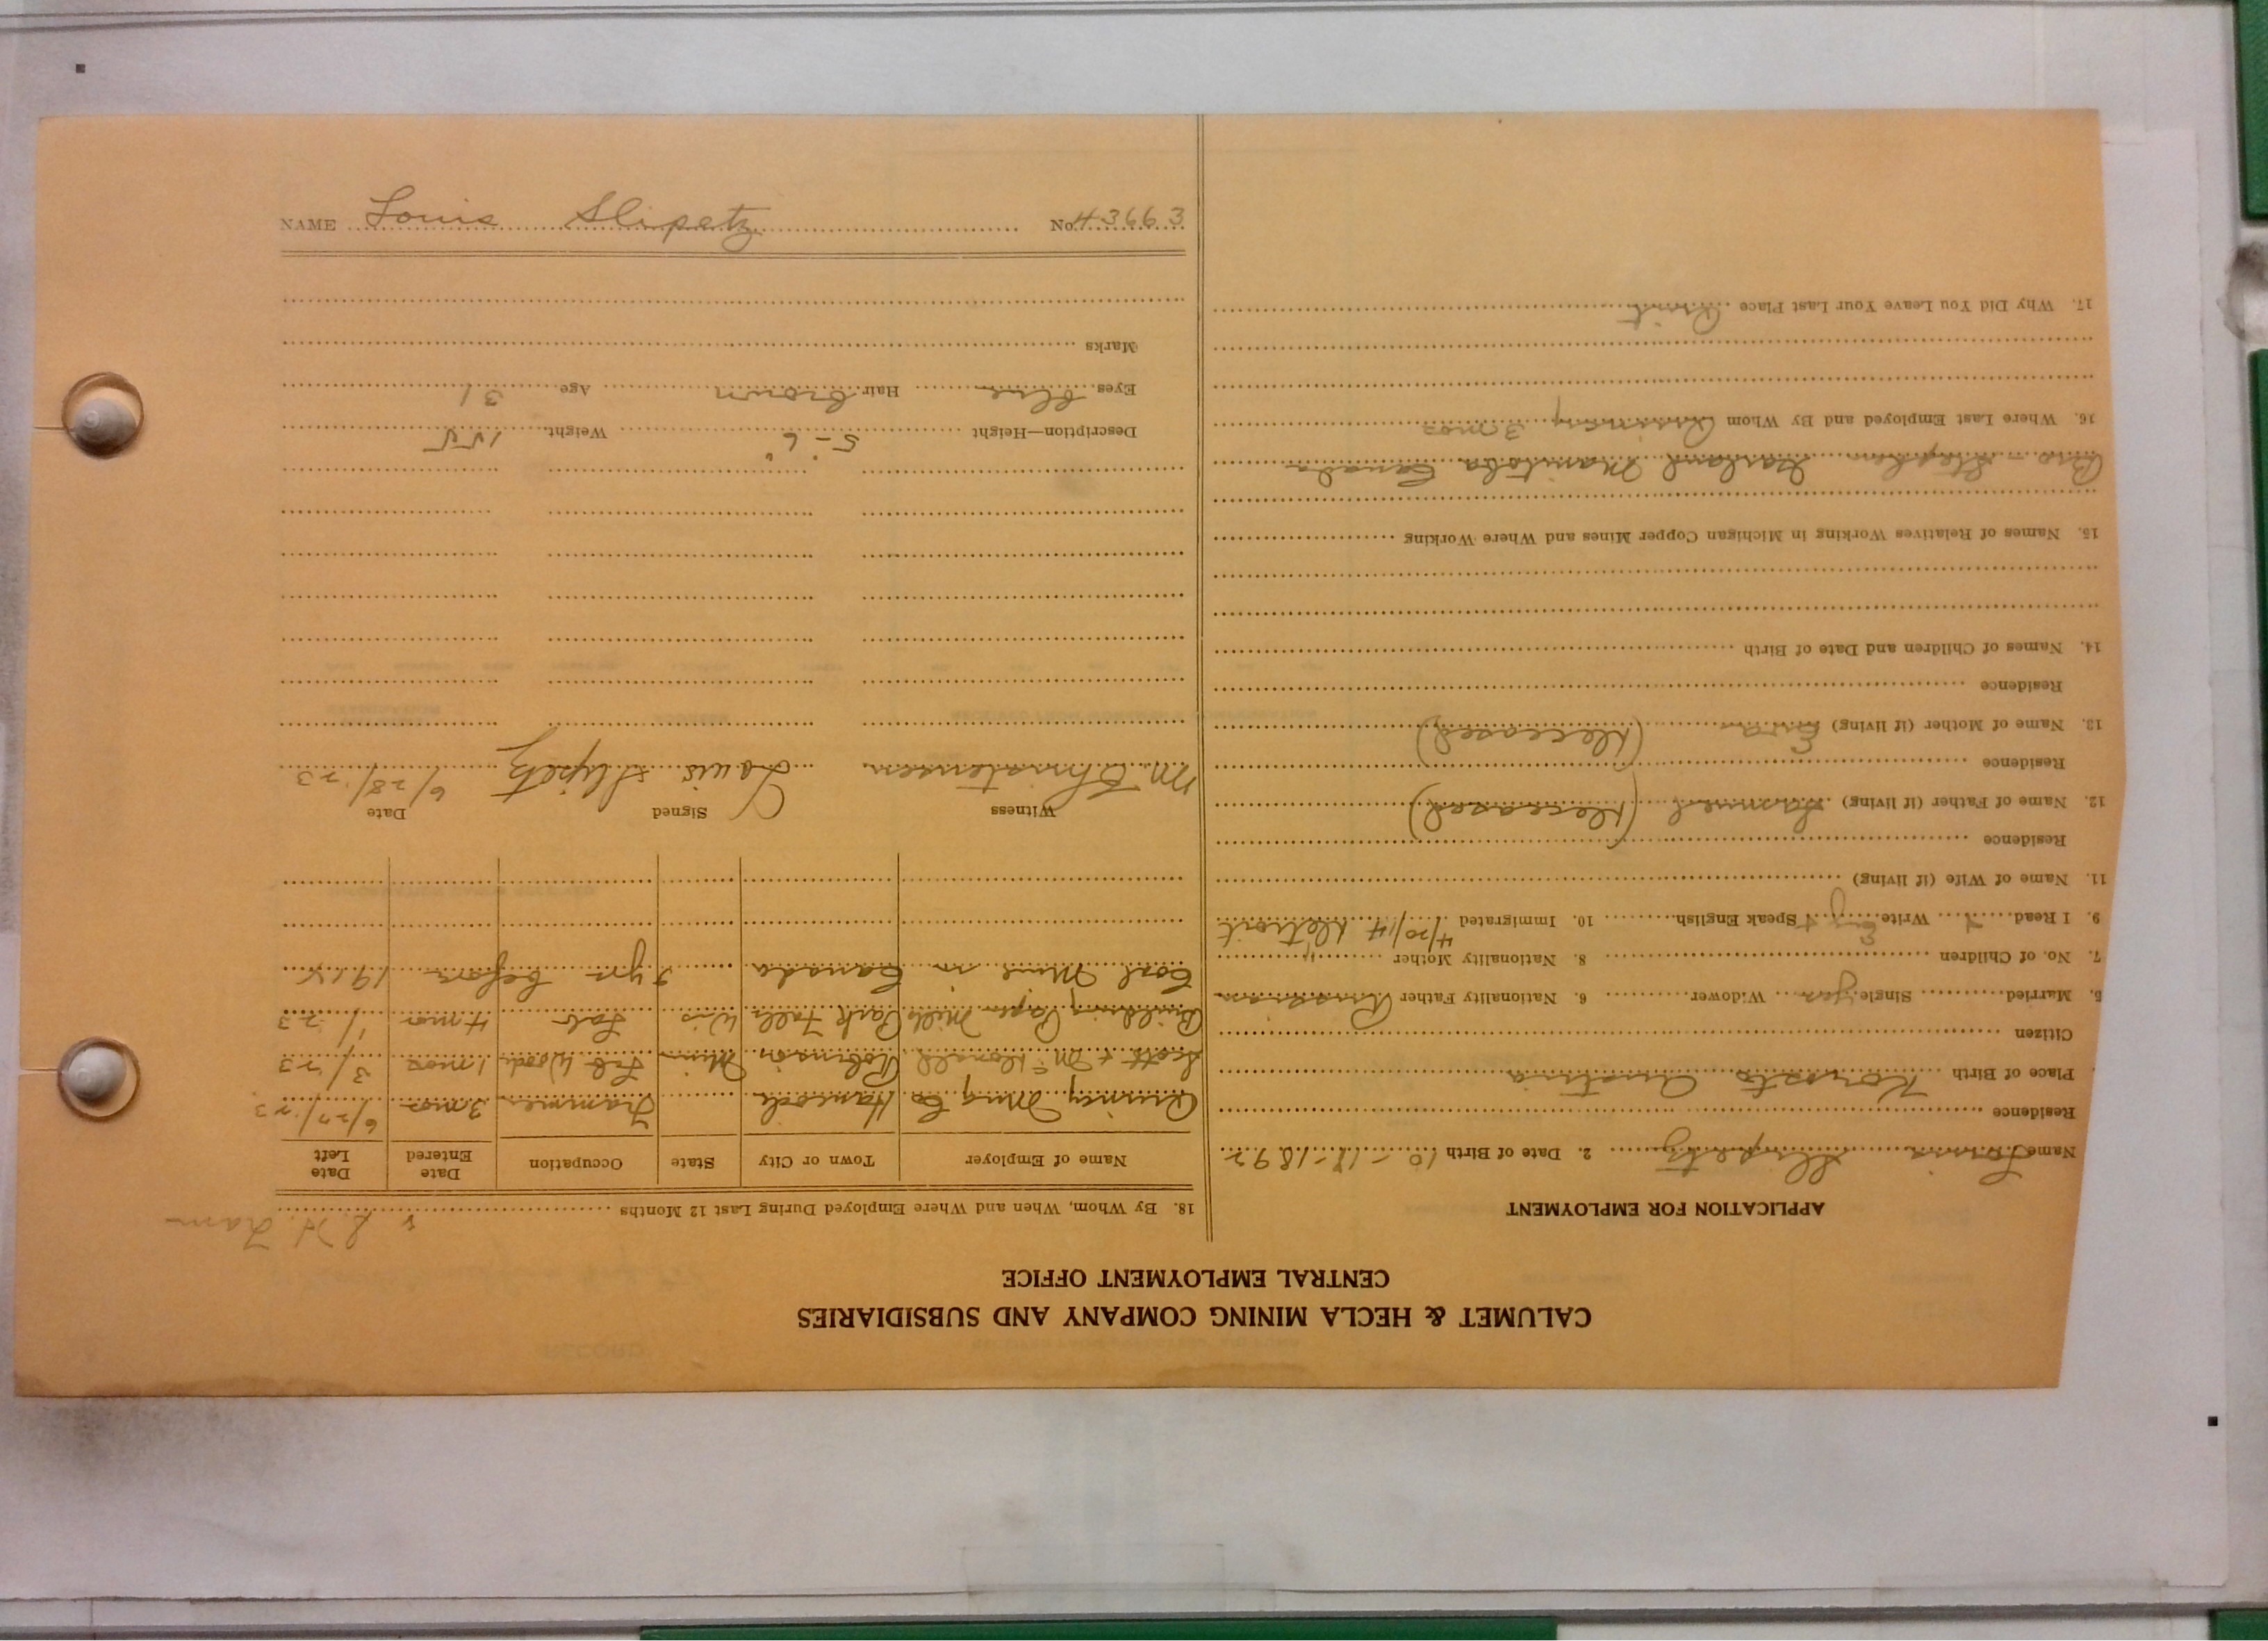 CALUMET & HECLA MINING COMPANY AND SUBSIDIARIES
CENTRAL EMPLOYMENT OFFICE
APPLICATION FOR EMPLOYMENT
Name Louis Slipetz 2. Date of Birth 10-18-1892
Residence
Place of Birth Austria
Citizen
5. Married Single yes Widower 6. Nationality Father Russian
7. No. of Children 8. Nationality Mother "
9. I Read Write Eng Speak English 10. Immigrated 4/20/14 Detroit
11. Name of Wife (if living)
Residence
12. Name of Father (if living) Samuel (Deceased)
Residence
13. Name of Mother (if living) Eva (Deceased)
Residence
14. Names of Children and Date of Birth
15. Names of Relatives Working in Michigan Copper Mines and Where Working
Bro - Stephen Garland Manitoba Canada
16. Where Last Employed and By Whom Quincy 3 mos
17. Why Did You Leave Your Last Place Quit
18. By Whom, When and Where Employed During Last 12 Months
Name of Employer Town or City State Occupation Date Entered Date Left
Quincy Mng Co Hancock Trammer 3 mos 6/27/23
Scott & McDonald Robinson Minn Lab Woods 1 mos 3/23
Building Paper Mills Park Falls Wis Lab 4 mos 1/23
Coal Mine in Canada yrs before 1918
Witness Signed Date
M. Christensen Louis Slipetz 6/28/23
Description—Height 5'-6" Weight 155
Eyes Blue Hair Brown Age 31
Marks
NAME Louis Slipetz No. 43663